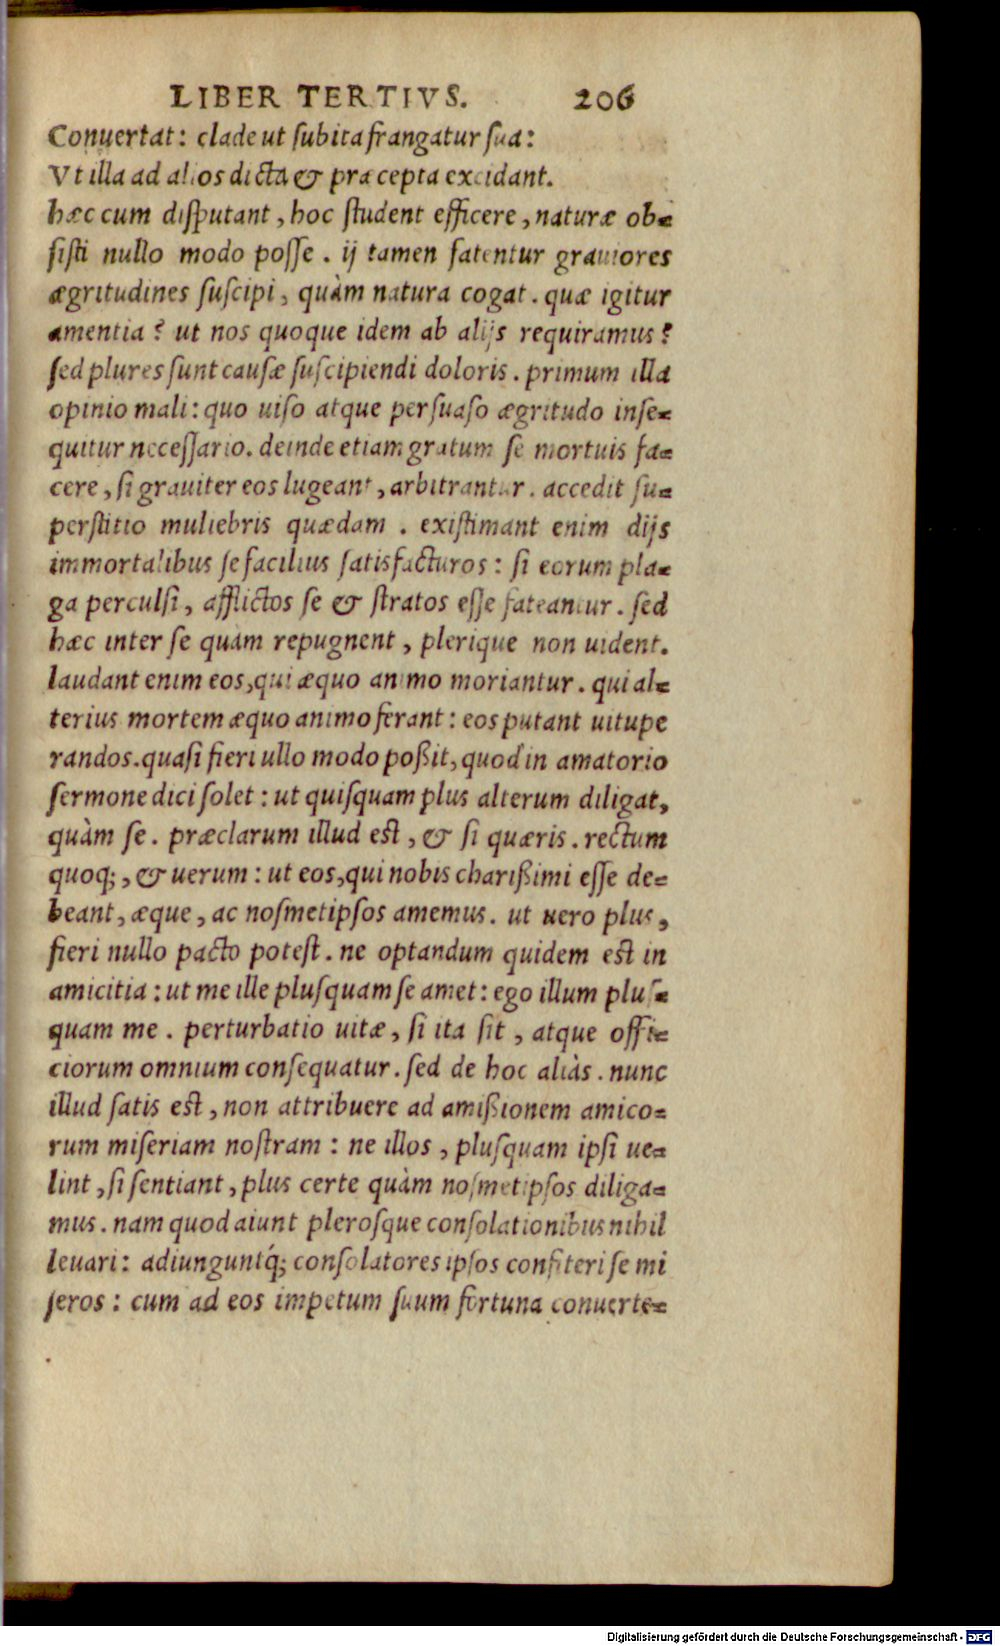 LIBER TERTIVS. 206
Conuertat: clade ut subita frangatur sua:
Vt illa ad alios dicta & præcepta excidant.
hæc cum disputant, hoc student efficere, naturæ ob=
sisti nullo modo posse. ij tamen fatentur grauiores
ægritudines suscipi, quàm natura cogat. quæ igitur
amentia? ut nos quoque idem ab alijs requiramus?
sed plures sunt causæ suscipiendi doloris. primum illa
opinio mali: quo uiso atque persuaso ægritudo inse=
quitur necessario. deinde etiam gratum se mortuis fa=
cere, si grauiter eos lugeant, arbitrantur. accedit su=
perstitio muliebris quædam. existimant enim dijs
immortalibus se facilius satisfacturos: si eorum pla=
ga perculsi, afflictos se & stratos esse fateantur. sed
hæc inter se quàm repugnent, plerique non uident.
laudant enim eos, qui æquo animo moriantur. qui al=
terius mortem æquo animo ferant: eos putant uitupe
randos. quasi fieri ullo modo poßit, quod in amatorio
sermone dici solet: ut quisquam plus alterum diligat,
quàm se. præclarum illud est, & si quæris. rectum
quoq;, & uerum: ut eos, qui nobis charißimi esse de=
beant, æque, ac nosmetipsos amemus. ut uero plus,
fieri nullo pacto potest. ne optandum quidem est in
amicitia: ut me ille plusquam se amet: ego illum plus=
quam me. perturbatio uitæ, si ita sit, atque offi=
ciorum omnium consequatur. sed de hoc aliàs. nunc
illud satis est, non attribuere ad amißionem amico=
rum miseriam nostram: ne illos, plusquam ipsi ue=
lint, si sentiant, plus certe quàm nosmetipsos diliga=
mus. nam quod aiunt plerosque consolationibus nihil
leuari: adiunguntq́; consolatores ipsos confiteri se mi
seros: cum ad eos impetum suum fortuna conuerte=
Digitalisierung gefördert durch die Deutsche Forschungsgemeinschaft - DFG